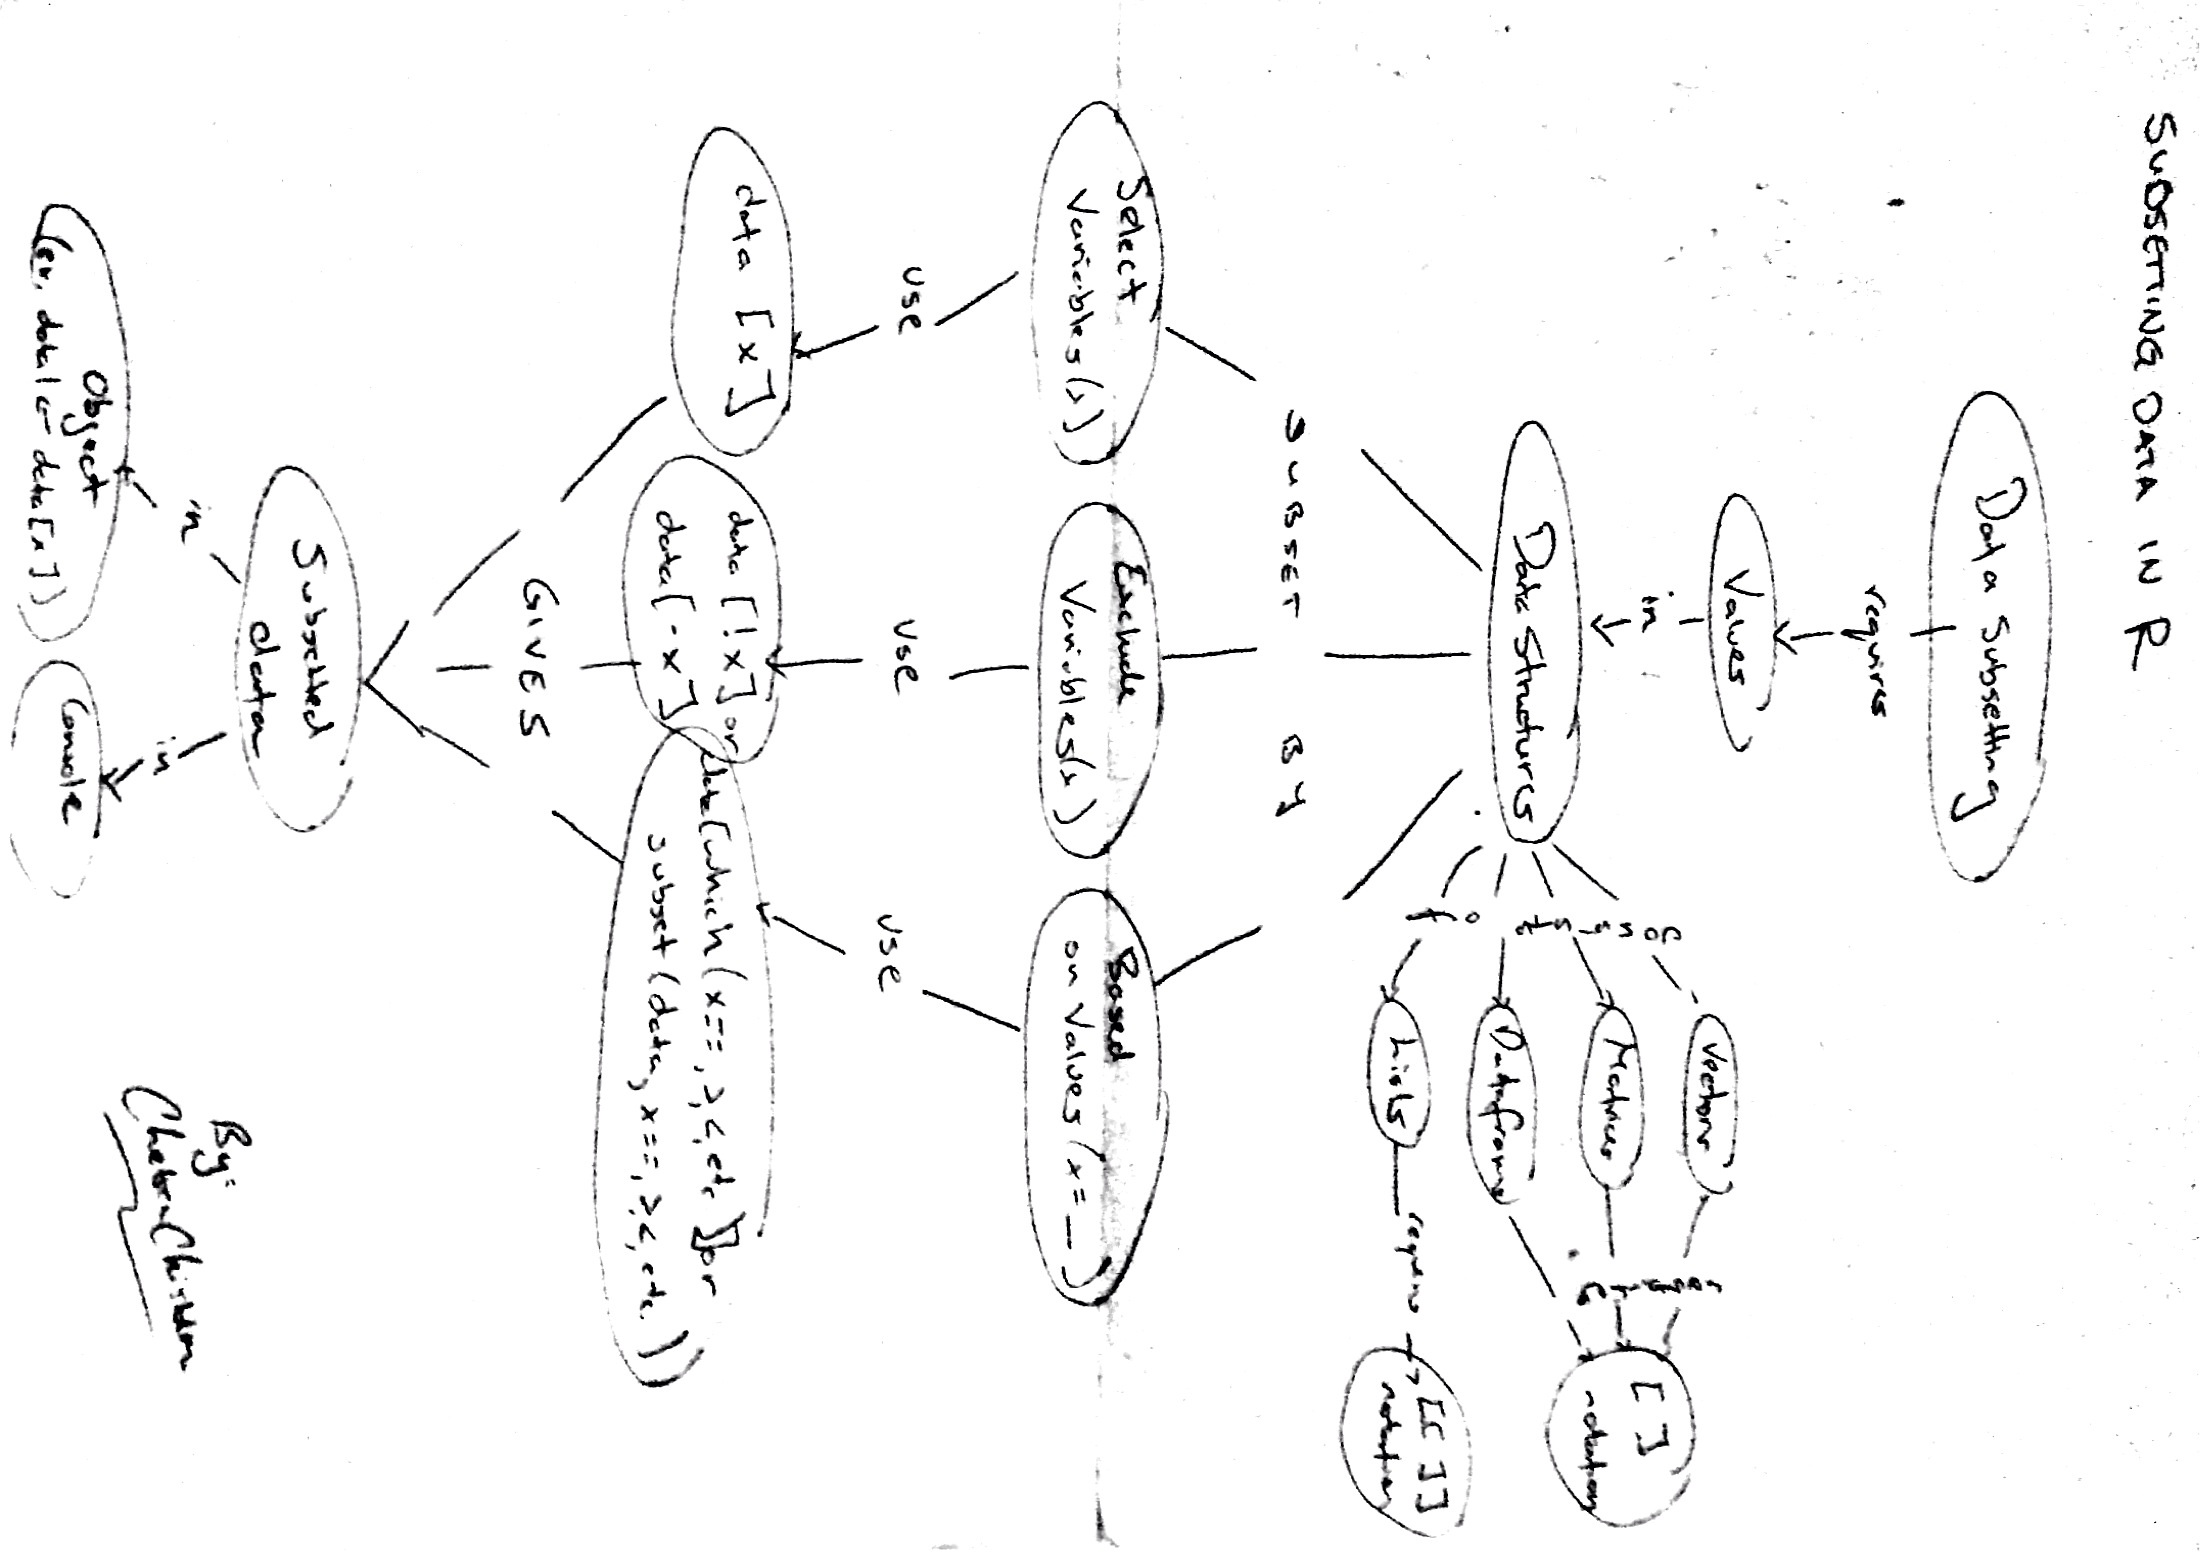 SUBSETTING DATA IN R
Data Subsetting
requires
Values
in
Data Structures
consist of
Vectors
Matrices
Dataframe
Lists
require
requires
[ ]
notation
[[ ]]
notation
SUBSET BY
Select
Variables(x)
Exclude
Variables(x)
Based
on Values (x=_)
use
use
use
data [x]
data [!x] or
data[-x]
data[which(x==,>,<,etc] or
subset(data, x==,>,<,etc.)
GIVES
Subsetted
data
in
in
Object
(ex. data1<-data[x])
Console
By: